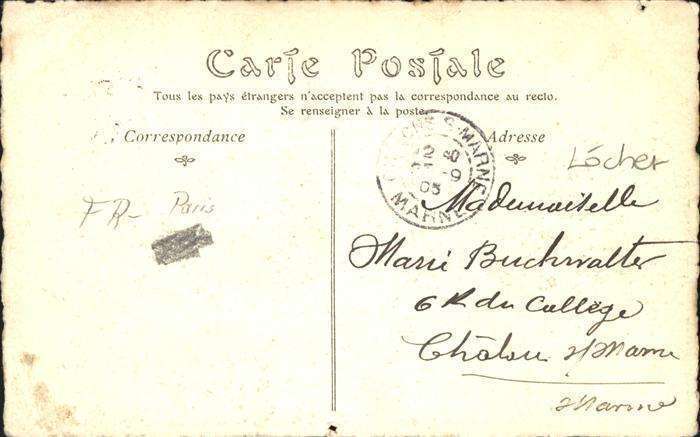 Carte Postale
Tous les pays étrangers n'acceptent pas la correspondance au recto.
Se renseigner à la poste.
Correspondance
Adresse
S-MARNE
05
MARNE
Löcher
FR- Paris
Mademoiselle
Marie Buchwalter
6 R du Collège
Châlon s/Marne
Marne